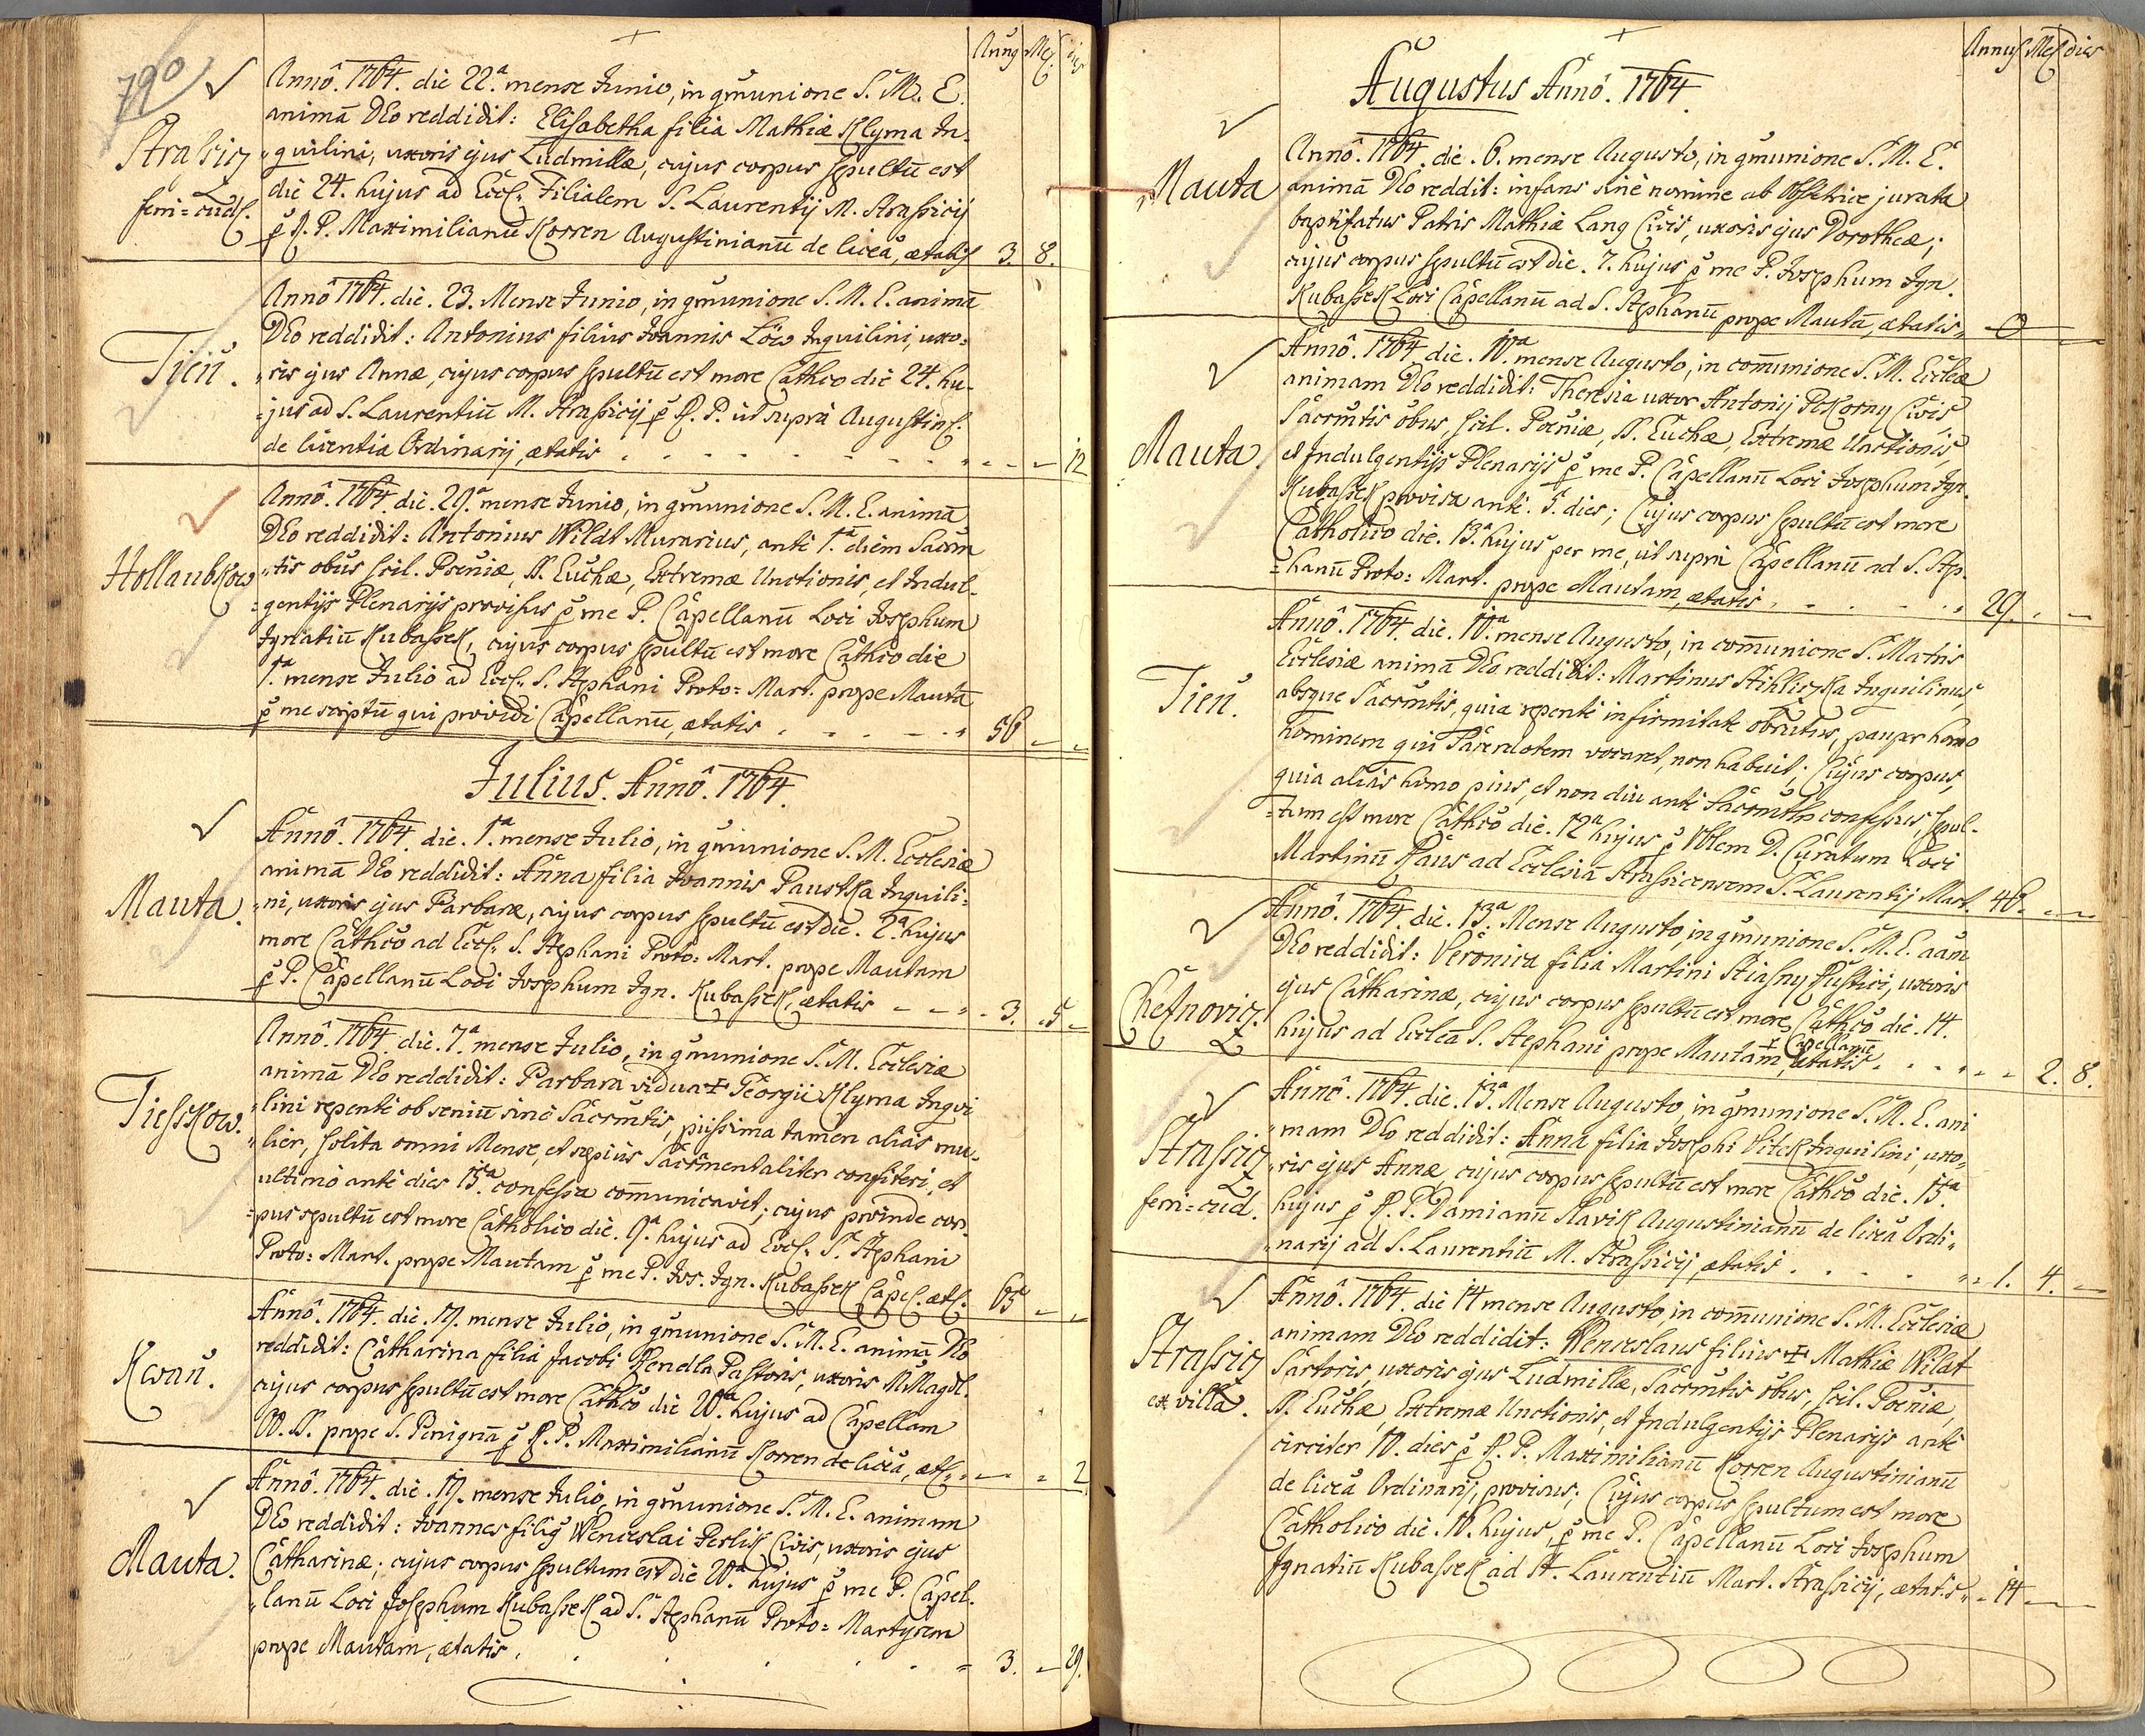 790
Annus Mes. dies
Strassicz
ferri=cud.
Annô. 1764. die 22.ª mense Junio, in gmunione S. M. E.
animā DEo reddidit: Elisabetha filia Mathiæ Klyma In-
„quilini, uxoris ejus Ludmillæ, cujus corpus sepultū est
die 24. hujus ad Eccl. Filialem S. Laurentij M. Strassicij
p R. P. Maximilianū Korren Augustinianū de liceā, ætatis 3. 8.
Tien.
Annô 1764. die. 23. Mense Junio, in gmunione S. M. E. animā
DEo reddidit: Antonius filius Joannis Löw Inquilini, uxo=
„ris ejus Annæ, cujus corpus sepultū est more Cathco die 24. hu-
=jus ad S. Laurentiū M. Strassicij p R. P. ut supra Augustin.
de licentia Ordinarij, ætatis 12
Hollaubkow
Annô. 1764. die. 29.ª mense Junio, in gmunione S. M. E. animā
DEo reddidit: Antonius Wildt Murarius, ante 1.ᵃᵐ diem Sacrm
„tis obus scil. Pœniæ, S. Euchæ, Extremæ Unctionis, et Indul-
=gentijs Plenarijs provisus p me P. Capellanū Loci Josephum
Ignatiū Kubassek, cujus corpus sepultū est more Cathco die
1.ª mense Julio ad Eccl. S. Stephani Proto= Mart. prope Mautā
p me scriptū qui providi Capellanū, ætatis 56
Julius. Annô. 1764.
Mauta.
Annô. 1764. die. 1.ª mense Julio, in gmunione S. M. Ecclesiæ
animā DEo reddidit: Anna filia Joannis Paustka Inquili=
„ni, uxoris ejus Barbaræ, cujus corpus sepultū est die. 2.ª hujus
more Cathco ad Eccl. S. Stephani Proto= Mart. prope Mautam
p P. Capellanū Loci Josephum Ign. Kubassek, ætatis 3. 5
Tiesskow.
Annô. 1764. die. 7.ª mense Julio, in gmunione S. M. Ecclesiæ
animā DEo reddidit: Barbara vidua ✝ Georgii Klyma Inqvi
„lini repente ob seniū sine Sacrmtis, piissima tamen aliàs mu-
„lier, solita omni Mense, et sæpius Sacramentaliter confiteri, et
ultimo ante dies 15.ª confessa communicavit; cujus proinde cor-
=pus sepultū est more Catholico die. 9.ª hujus ad Eccl. S. Stephani
Proto= Mart. prope Mautam p me P. Jos. Ign. Kubassek Capel. æt. 65
Kwan.
Annô. 1764. die. 19. mense Julio, in gmunione S. M. E. animā DEo
reddidit: Catharina filia Jacobi Hendla Pastoris, uxoris M. Magdl.
cujus corpus sepultū est more Cathco die 20.ª hujus ad Capellam
W. N. prope S. Benignā p R. P. Maximilianū Korren de liceā, æt. 2
Mauta.
Annô. 1764. die. 19. mense Julio, in gmunione S. M. E. animam
DEo reddidit: Joannes filig Wenceslai Perlik Civis, uxoris ejus
Catharinæ; cujus corpus sepultum est die 20.ª hujus p me P. Capel-
„lanū Loci Josephum Kubassek ad S. Stephanū Proto= Martyrem
prope Mautam, ætatis 3. 29.
Annus Mes dies
Augustus Annô. 1764
Mauta
Annô. 1764. die. 6. mense Augusto, in gmunione S. M. E.
animā DEo reddit: infans sine nomine ab Obstetrice jurata
baptisatus Patris Mathiæ Lang Civis, uxoris ejus Dorotheæ;
cujus corpus sepultū est die. 7. hujus p me P. Josephum Ign.
Kubassek Loci Capellanū ad S. Stephanū prope Mautā, ætatis 0
Mauta.
Annô. 1764. die. 10.ª mense Augusto, in communione S. M. Eccleæ
animam DEo reddidit: Theresia uxor Antonij Pekorny Civis
Sacrmtis obus, scil. Pœniæ, S. Euchæ, Extremæ Unctionis
et Indulgentijs Plenarijs p me P. Capellanū Loci Josephum Ign.
Kubassek provisa ante. 5. dies; Cujus corpus sepultū est more
Catholico die. 13.ª hujus per me, ut supra Capellanū ad S. Step-
=hanū Proto= Mart. prope Mautam, ætatis 29.
Tien.
Annô. 1764. die. 10.ª mense Augusto, in communione S. Matris
Ecclesiæ animā DEo reddidit: Martinus Stihliczka Inquilinus,
absque Sacrmtis, quia repente infirmitate obrutus, pauper homo
hominem qui Sacerdotem vocaret, non habuit; Cujus corpus,
quia aliàs homo pius, et non diu ante Sacrmtlr confessus, sepul-
=tum est more Cathco die. 12.ª hujus p Vblem D. Curatum Loci
Martinū Kaus ad Ecclesiā Strassicensem S. Laurentij Mart. 46.
Cheznovicz.
Annô. 1764. die. 13.ª Mense Augusto, in gmunione S. M. E. aām
DEo reddidit: Veronica filia Martini Stiasny Rustici, uxoris
ejus Catharinæ, cujus corpus sepultū est more Cathco die. 14.
hujus ad Eccleā S. Stephani prope Mautam, ✝ Capellanū ætatis 2. 8.
Strassicz
ferri=cud.
Annô. 1764. die. 13.ª Mense Augusto, in gmunione S. M. E. ani
„mam DEo reddidit: Anna filia Josephi Vitek Inquilini, uxo=
„ris ejus Annæ, cujus corpus sepultū est more Cathco die. 15.ª
hujus p R. P. Damianū Slavik Augustinianū de liceā Ordi„
„narij ad S. Laurentiū M. Strassicij, ætatis 1. 4.
Strassicz
ex villa.
Annô. 1764. die 14 mense Augusto, in communione S. M. Ecclesiæ
animam DEo reddidit: Wenceslaus filius ✝ Mathiæ Wildt
Sartoris, uxoris ejus Ludmillæ, Sacrmtis obus, scil. Pœniæ,
S. Euchæ, Extremæ Unctionis, et Indulgentijs Plenarijs ante
circiter 10. dies p R. P. Maximilianū Korren Augustinianū
de liceā Ordinarij, provisus; Cujus corpus sepultum est more
Catholico die. 16. hujus, p me P. Capellanū Loci Josephum
Ignatiū Kubassek ad St. Laurentiū Mart. Strassicij, ætatis 14